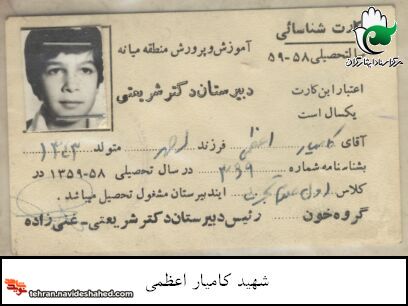 کارت شناسائی
سال تحصیلی ۵۸-۵۹
آموزش و پرورش منطقه میانه
دبیرستان دکتر شریعتی
اعتبار این کارت
یکسال است
آقای کامیار اعظمی فرزند متولد ۱۳۴۳
بشناسنامه شماره ۳۶۹ در سال تحصیلی ۵۸-۱۳۵۹
کلاس اول علوم تجربی این دبیرستان مشغول تحصیل میباشد.
گروه خون
رئیس دبیرستان دکتر شریعتی - غنی زاده
مرکز اسناد ایثارگران
tehran.navideshahed.com
شهید کامیار اعظمی